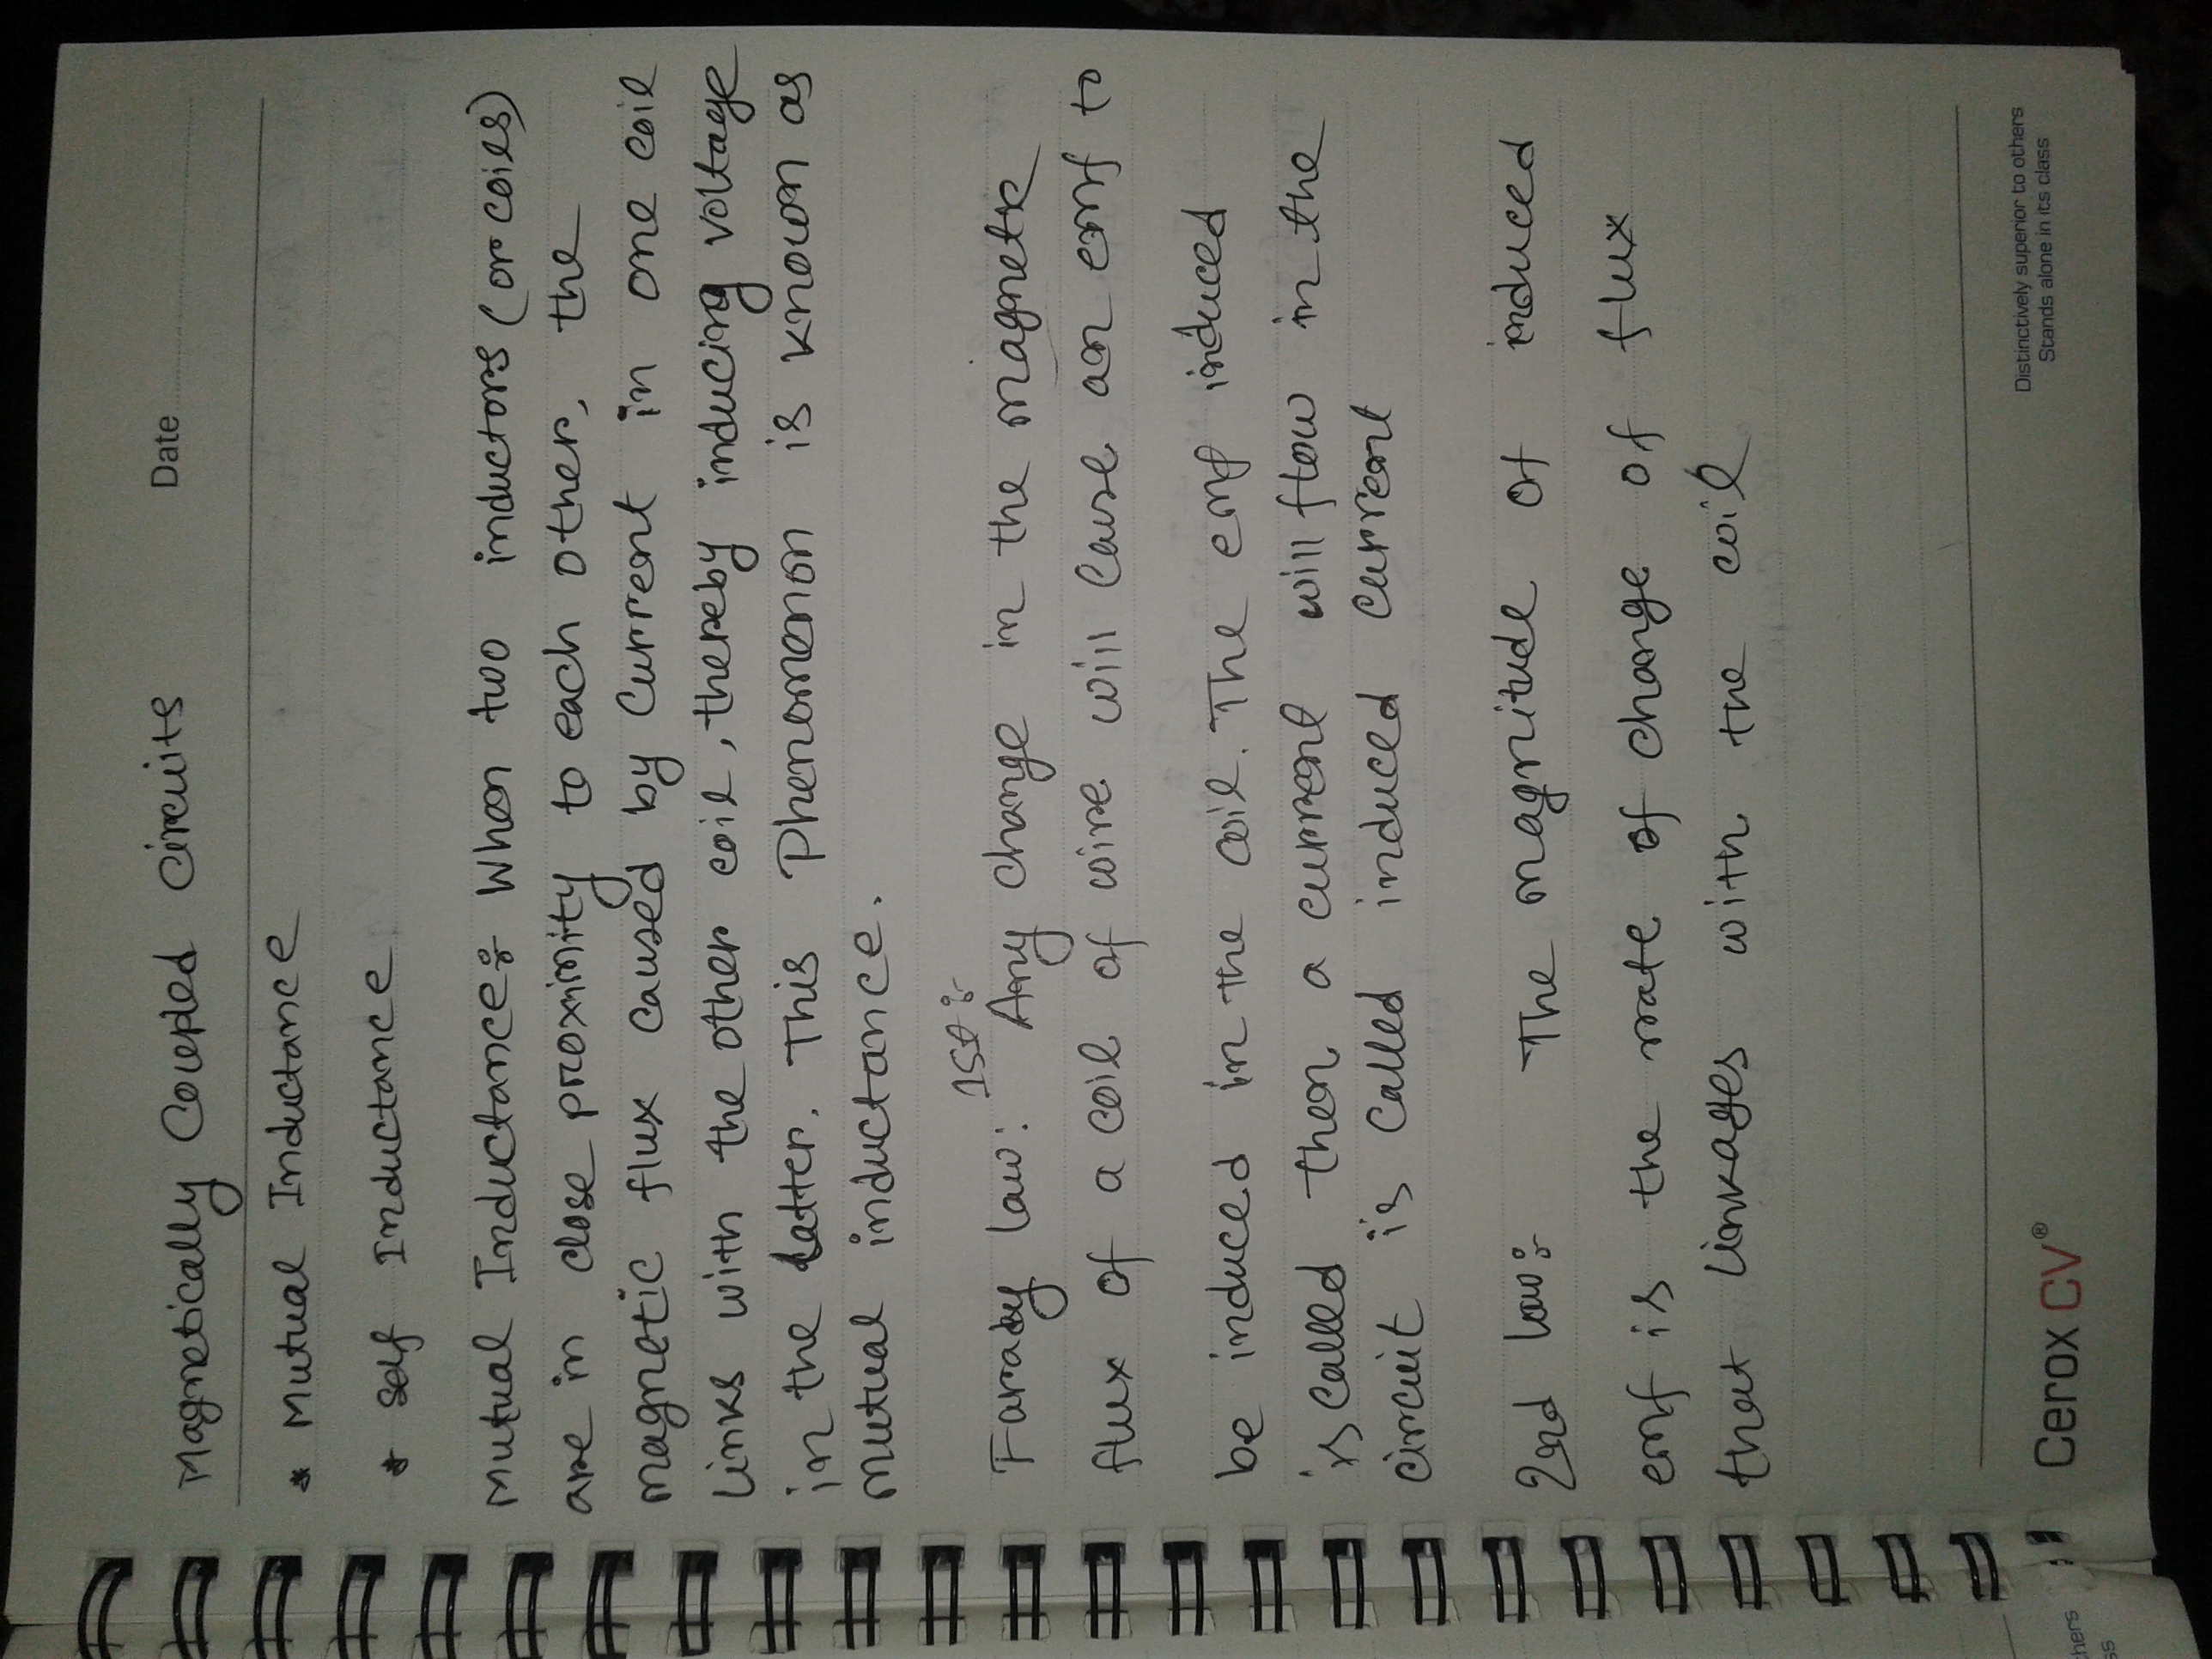 Magnetically Coupled Circuits
Date
* Mutual Inductance
* Self Inductance
Mutual Inductance:- When two inductors (or coils)
are in close proximity to each other, the
magnetic flux caused by Current in one coil
links with the other coil, thereby inducing voltage
in the latter. This Phenomenon is known as
mutual inductance.
1st :-
Farady law: Any change in the magnetic
flux of a coil of wire will cause an emf to
be induced in the coil. The emf induced
is called then a current will flow in the
circuit is called induced current
2nd law:- The magnitude of induced
emf is the rate of change of flux
that linkages with the coil
Cerox CV®
Distinctively superior to others
Stands alone in its class
thers
ss